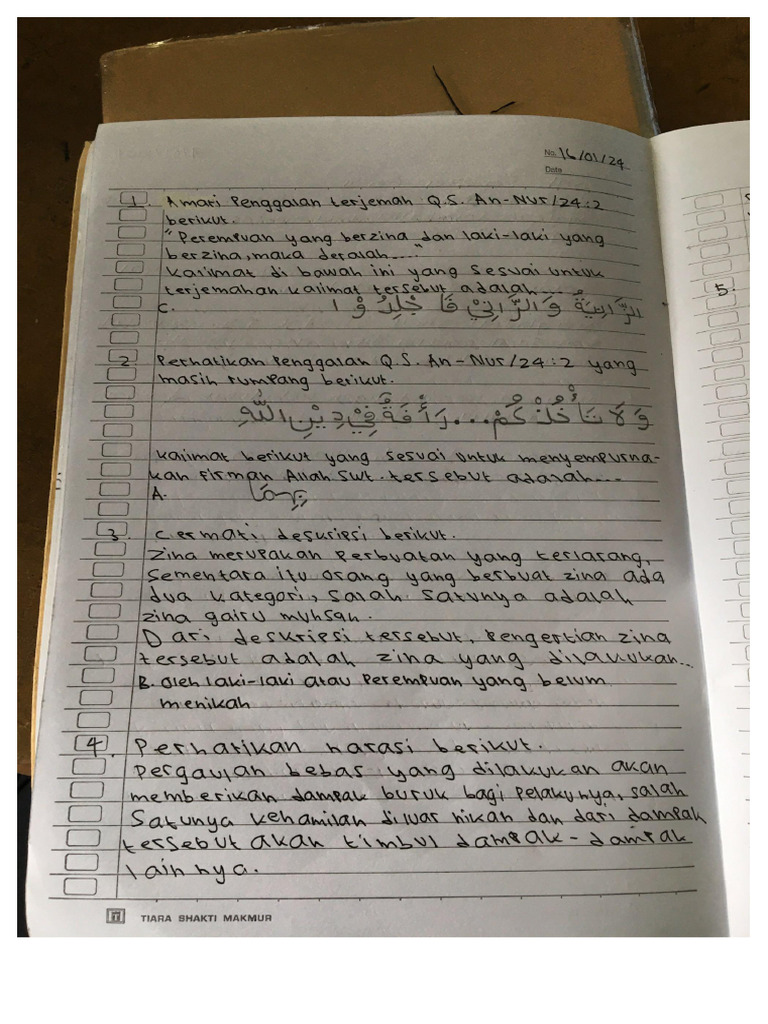 No. 16/01/24
Date
1. Amari Penggalan terjemah Q.S. An-Nur/24:2
berikut.
"Perempuan yang berzina dan laki-laki yang
berzina, maka deralah...."
Kalimat di bawah ini yang sesuai untuk
terjemahan kalimat tersebut adalah....
C. الزَّانِيَةُ وَالزَّانِيْ فَاجْلِدُوْا
2. Perhatikan Penggalan Q.S. An-Nur/24:2 yang
masih rumpang berikut.
وَلَا تَأْخُذْكُمْ ... رَأْفَةٌ فِيْ دِيْنِ اللّٰهِ
Kalimat berikut yang sesuai untuk menyempurna-
kan Firman Allah Swt. tersebut adalah....
A. بِهِمَا
3. Cermati deskripsi berikut.
Zina merupakan Perbuatan yang terlarang,
Sementara itu orang yang berbuat zina ada
dua kategori, salah satunya adalah
zina gairu muhsan.
Dari deskripsi tersebut, Pengertian zina
tersebut adalah zina yang dilakukan...
B. Oleh laki-laki atau Perempuan yang belum
menikah
4. Perhatikan narasi berikut.
Pergaulan bebas yang dilakukan akan
memberikan dampak buruk bagi pelakunya, salah
Satunya kehamilan diluar nikan dan dari dampak
tersebut akan timbul dampak-dampak
lainnya.
TIARA SHAKTI MAKMUR
5.